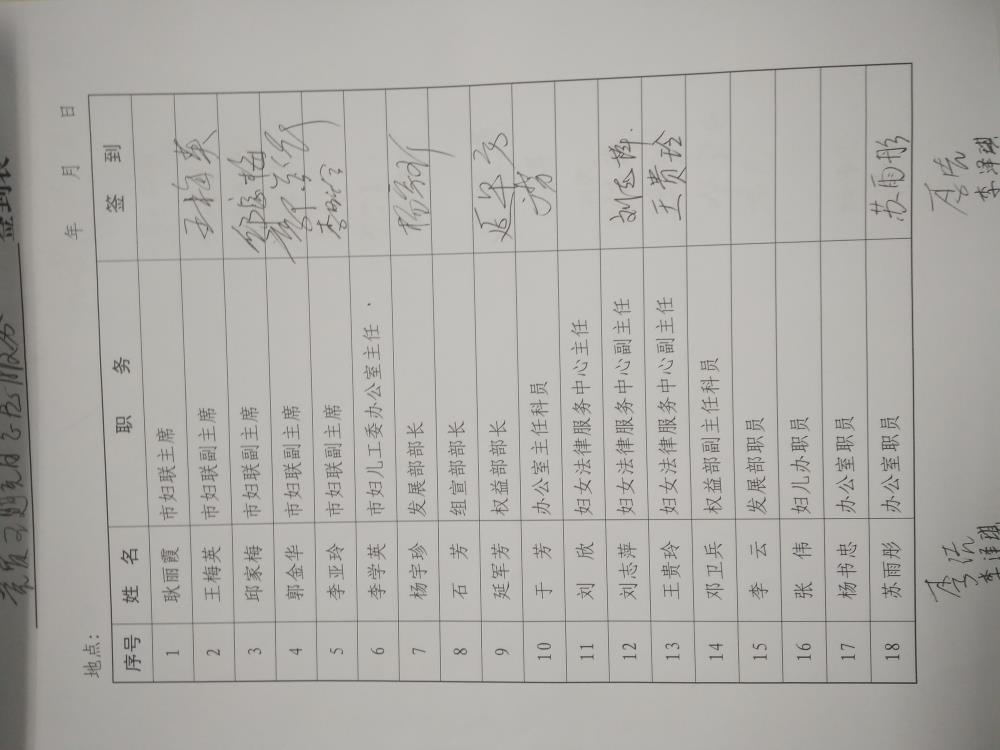 党员习题完自己书们服务 签到表
地点: 年 月 日
序号 姓 名 职 务 签 到
1 耿丽霞 市妇联主席
2 王梅英 市妇联副主席 王梅英
3 邱家梅 市妇联副主席 邱家梅
4 郭金华 市妇联副主席 郭金华
5 李亚玲 市妇联副主席 李亚玲
6 李学英 市妇儿工委办公室主任
7 杨宇珍 发展部部长
8 石 芳 组宣部部长
9 延军芳 权益部部长 延军芳
10 于 芳 办公室主任科员 于芳
11 刘 欣 妇女法律服务中心主任
12 刘志萍 妇女法律服务中心副主任 刘志萍
13 王贵玲 妇女法律服务中心副主任 王贵玲
14 邓卫兵 权益部副主任科员
15 李 云 发展部职员
16 张 伟 妇儿办职员
17 杨书忠 办公室职员
18 苏雨彤 办公室职员 苏雨彤